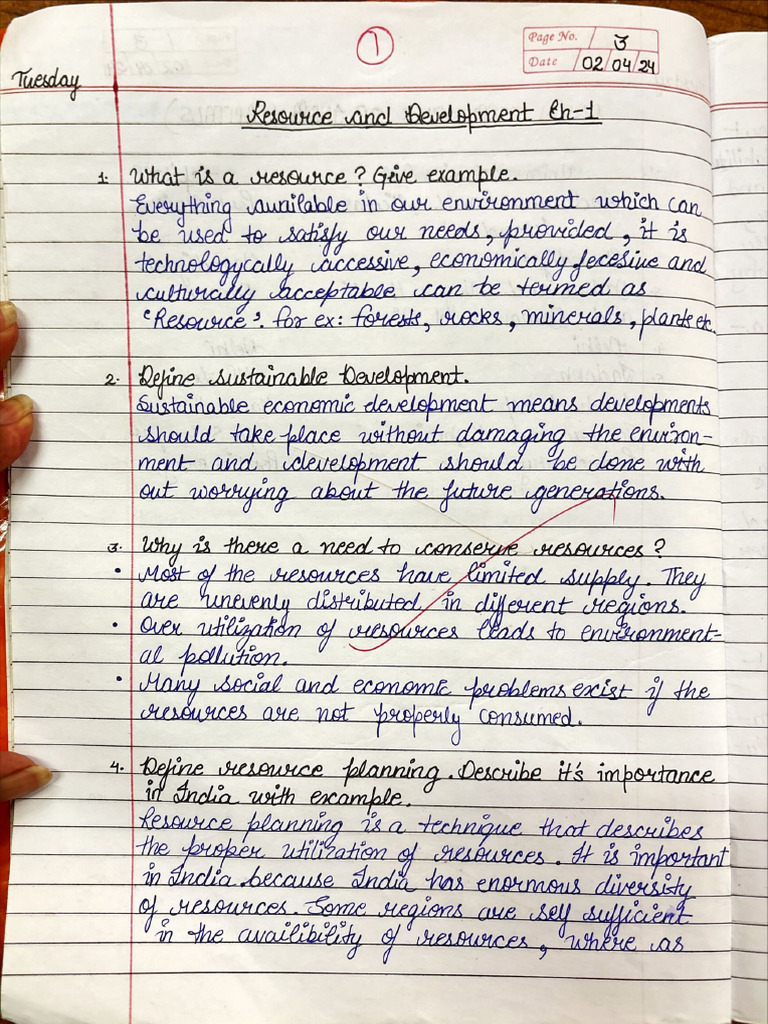 1
Page No. 3
Date 02 04 24
Tuesday
Resource and Development Ch-1
1. What is a resource? Give example.
Everything available in our environment which can
be used to satisfy our needs, provided, it is
technologycally accessive, economically fecesive and
culturally acceptable can be termed as
'Resource'. for ex: forests, rocks, minerals, plants etc.
2. Define Sustainable Development.
Sustainable economic development means developments
should take place without damaging the environ-
ment and development should be done with
out worrying about the future generations.
3. Why is there a need to conserve resources?
• Most of the resources have limited supply. They
are unevenly distributed in different regions.
• Over utilization of resources leads to environment-
al pollution.
• Many social and economic problems exist if the
resources are not properly consumed.
4. Define resource planning. Describe it's importance
in India with example.
Resource planning is a technique that describes
the proper utilization of resources. It is important
in India because India has enormous diversity
of resources. Some regions are self sufficient
in the availibility of resources, where as